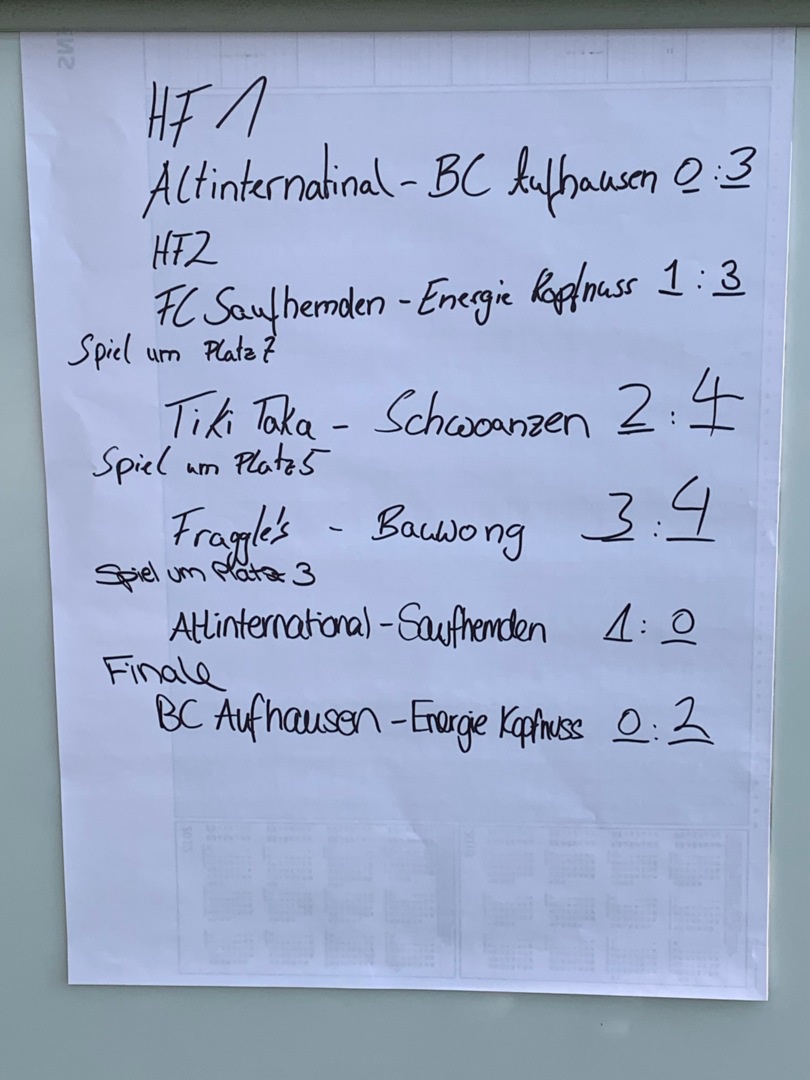 HF 1
Altinternatinal - BC Aufhausen 0:3
HF2
FC Saufhemden - Energie Kopfnuss 1:3
Spiel um Platz 7
Tiki Taka - Schwoanzen 2:4
Spiel um Platz 5
Fraggle's - Bauwong 3:4
Spiel um Platz 3
Altinternational - Saufhemden 1:0
Finale
BC Aufhausen - Energie Kopfnuss 0:2